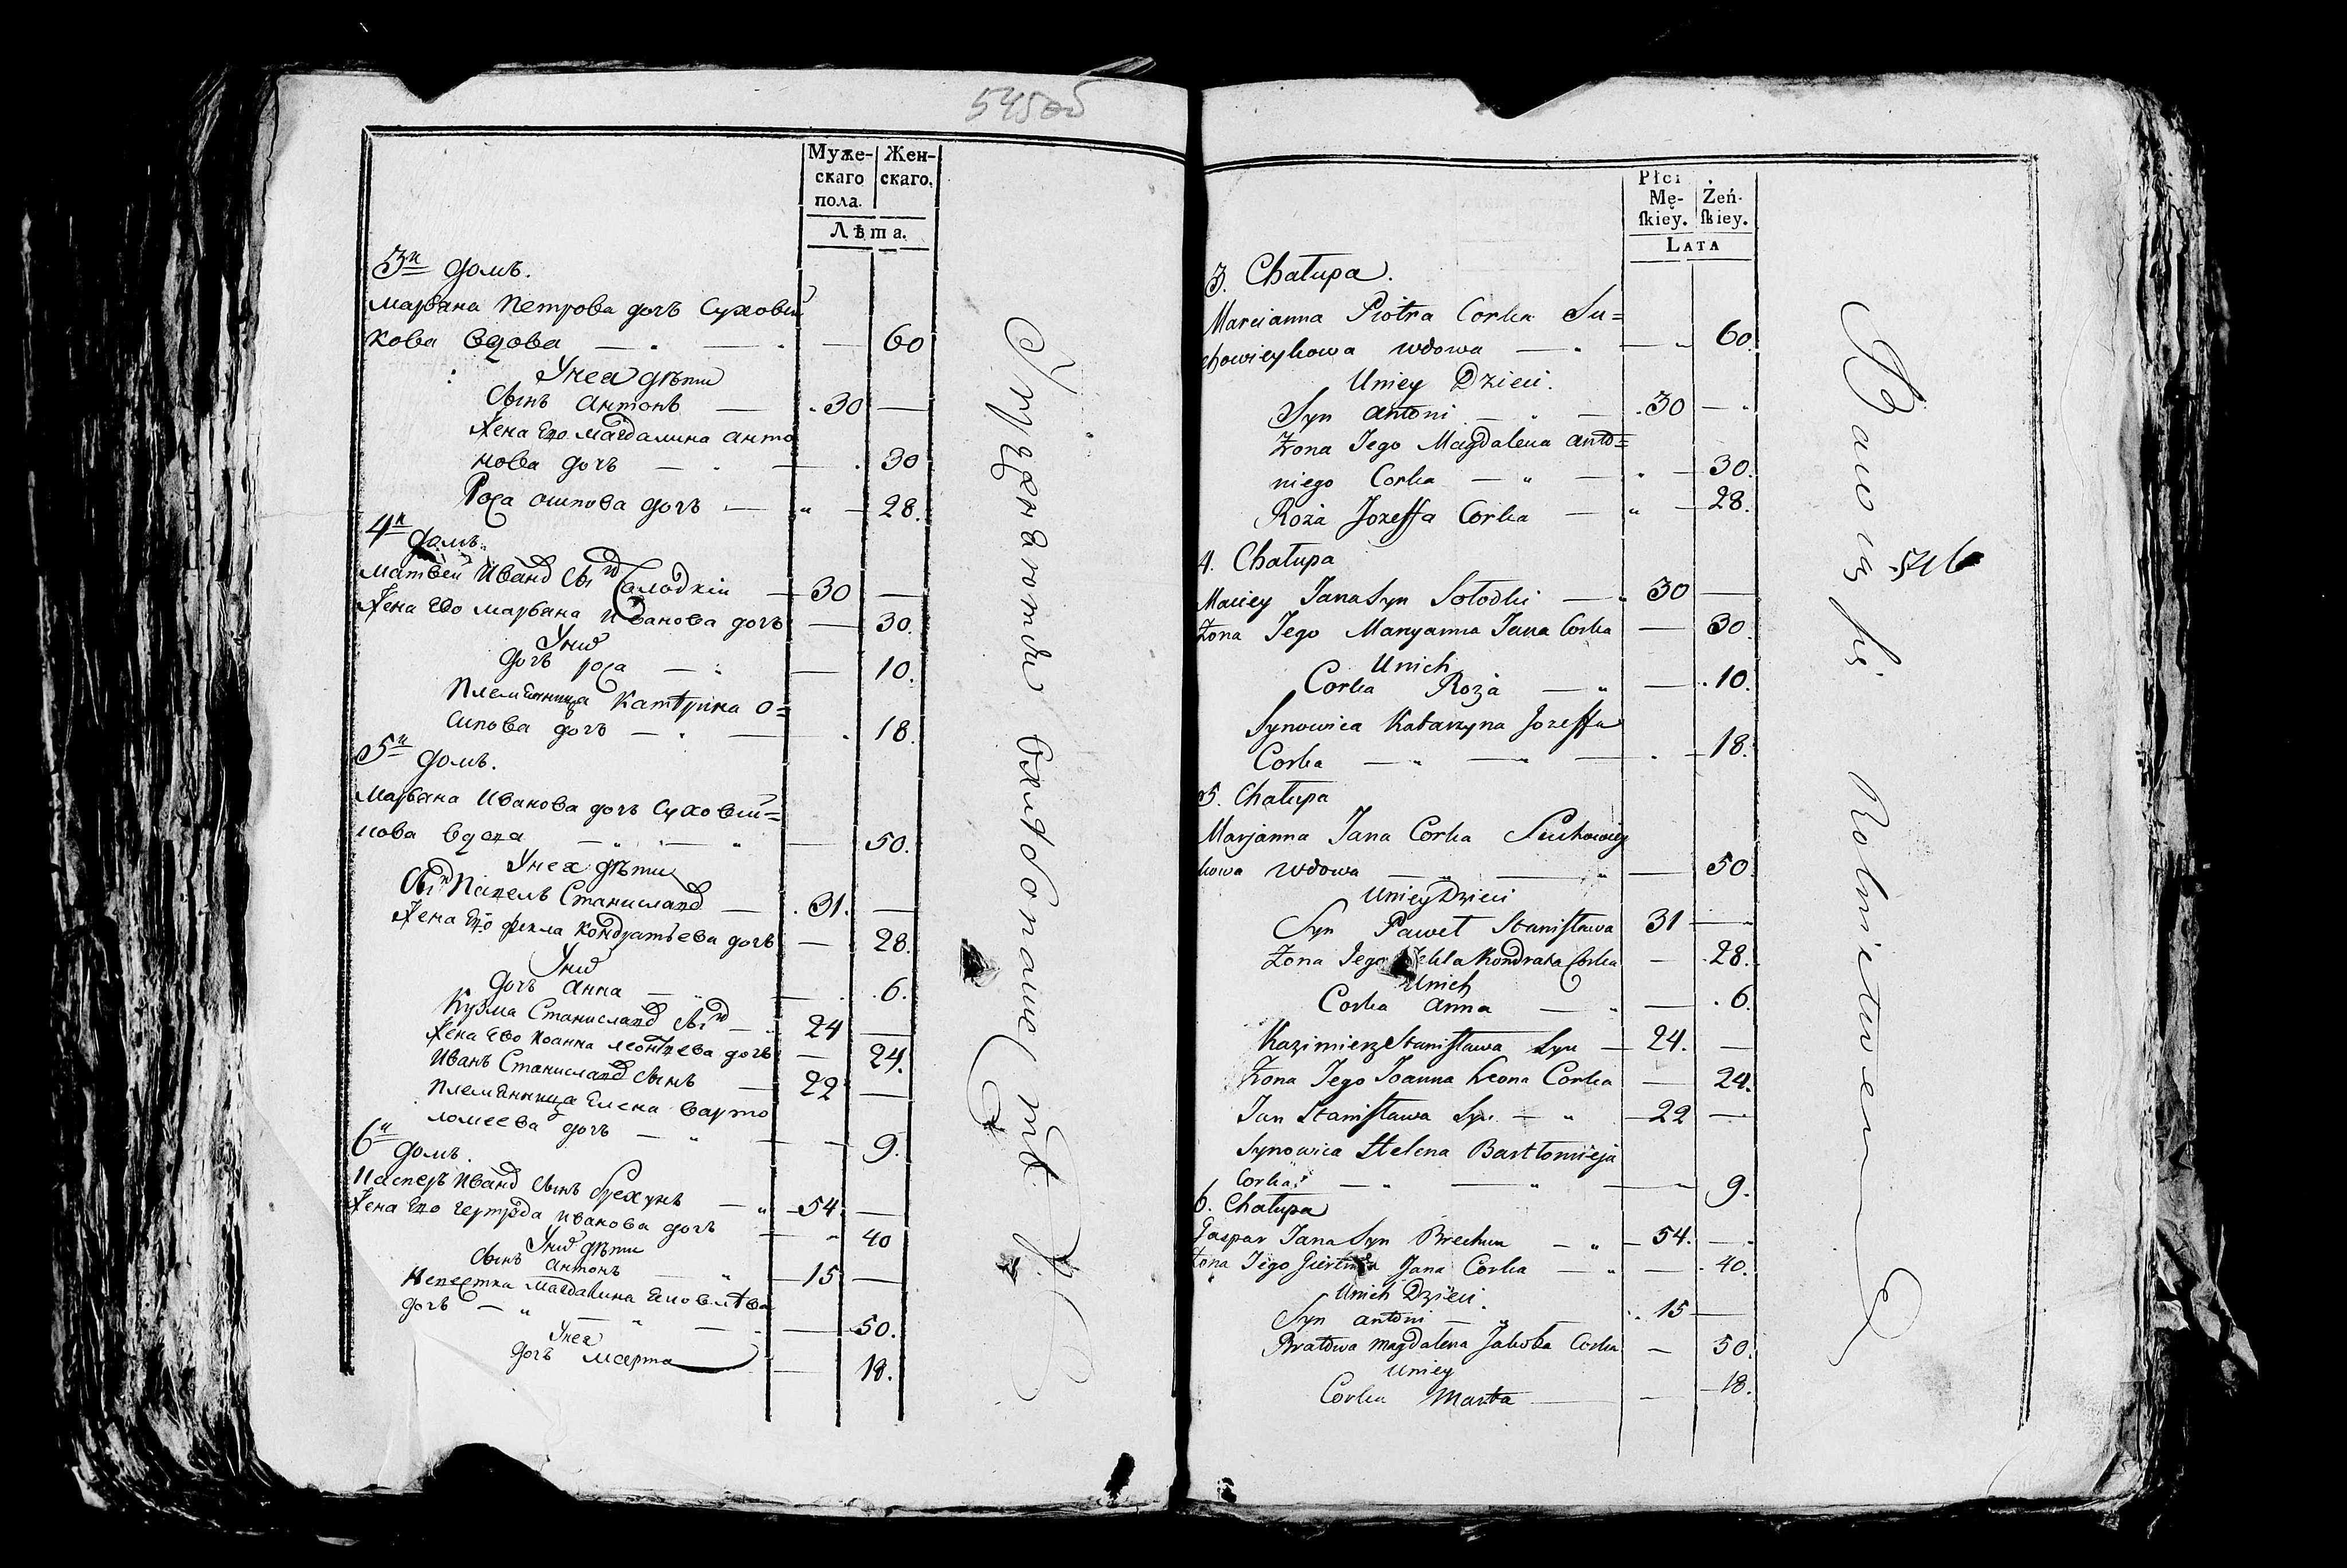 545об
Муже-
скаго
пола.
Жен-
скаго.
Лѣта.
3й домъ.
Марьяна Петрова дочъ Суховій
кова вдова — — — 60
У нея дѣти
Сынъ Антонъ — 30 —
Жена Его Магдалина Анто
нова дочъ — — 30
Роза Осипова дочъ — „ — 28.
4й домъ.
Матвей Иванов Сын Солодкій — 30 —
Жена Ево Марьяна Иванова дочъ — 30.
У них
дочъ роза — — 10.
Племянница Катерина О=
сипова дочъ — — 18.
5й домъ.
Марьяна Иванова дочъ Суховій=
кова вдова — „ — „ — 50.
У нея дѣти
Сын Павелъ Станиславов — 31. —
Жена Его Фекла Кондратьева дочъ — 28.
У них
дочъ Анна — „ — 6.
Кузма Станиславов Сын — 24 —
Жена Ево Иоанна Леонтьева дочъ — 24.
Иванъ Станиславов Сынъ — 22 —
Племянница Елена Варто
ломеева дочъ — „ — 9.
6й домъ.
Касперъ Иванов Сынъ Брехунъ — „ — 54 —
Жена Его Гертруда Иванова дочъ — 40
У них дѣти
Сынъ Антонъ — „ — 15 —
Невестка Магдалина Яковлева
дочъ — „ — „ — 50.
У нея
дочъ Марта — 18.
упражняются хлебопашеством
Płci
Mę-
ſkiey.
Żeń-
ſkiey.
LATA
3. Chałupa.
Marcianna Piotra Corka Su=
chowieykowa wdowa — — 60.
U niey Dzieci.
Syn Antoni — „ — 30 —
Żona Jego Magdalena Anto=
niego Corka — „ — 30.
Roża Jozeffa Corka — „ — 28.
4. Chałupa
Maciey Jana Syn Sołodki — 30 —
Żona Jego Maryanna Jana Corka — 30.
U nich
Corka Roża — „ — 10.
Synowica Katarzyna Jozeffa
Corka — „ — „ — 18.
5. Chałupa
Marjanna Jana Corka Suchowiey
kowa wdowa — „ — „ — 50
U niey Dzieci
Syn Paweł Staniſława 31 —
Żona Jego Tekla Kondrata Corka — 28.
U nich
Corka Anna — „ — 6.
Kazimierz Staniſława Syn — 24. —
Żona Jego Joanna Leona Corka — 24.
Jan Staniſława Syn — „ — 22 —
Synowica Helena Bartłomieja
Corka — „ — „ — 9.
6. Chałupa
Gaspar Jana Syn Brechun — „ — 54. —
Żona Jego Giertruda Jana Corka — „ — 40.
U nich Dzieci.
Syn Antoni — „ 15 —
Bratowa Magdalena Jakoba Corka — 50.
U niey
Corka Marta — — 18.
546
Bawią się Rolnictwem